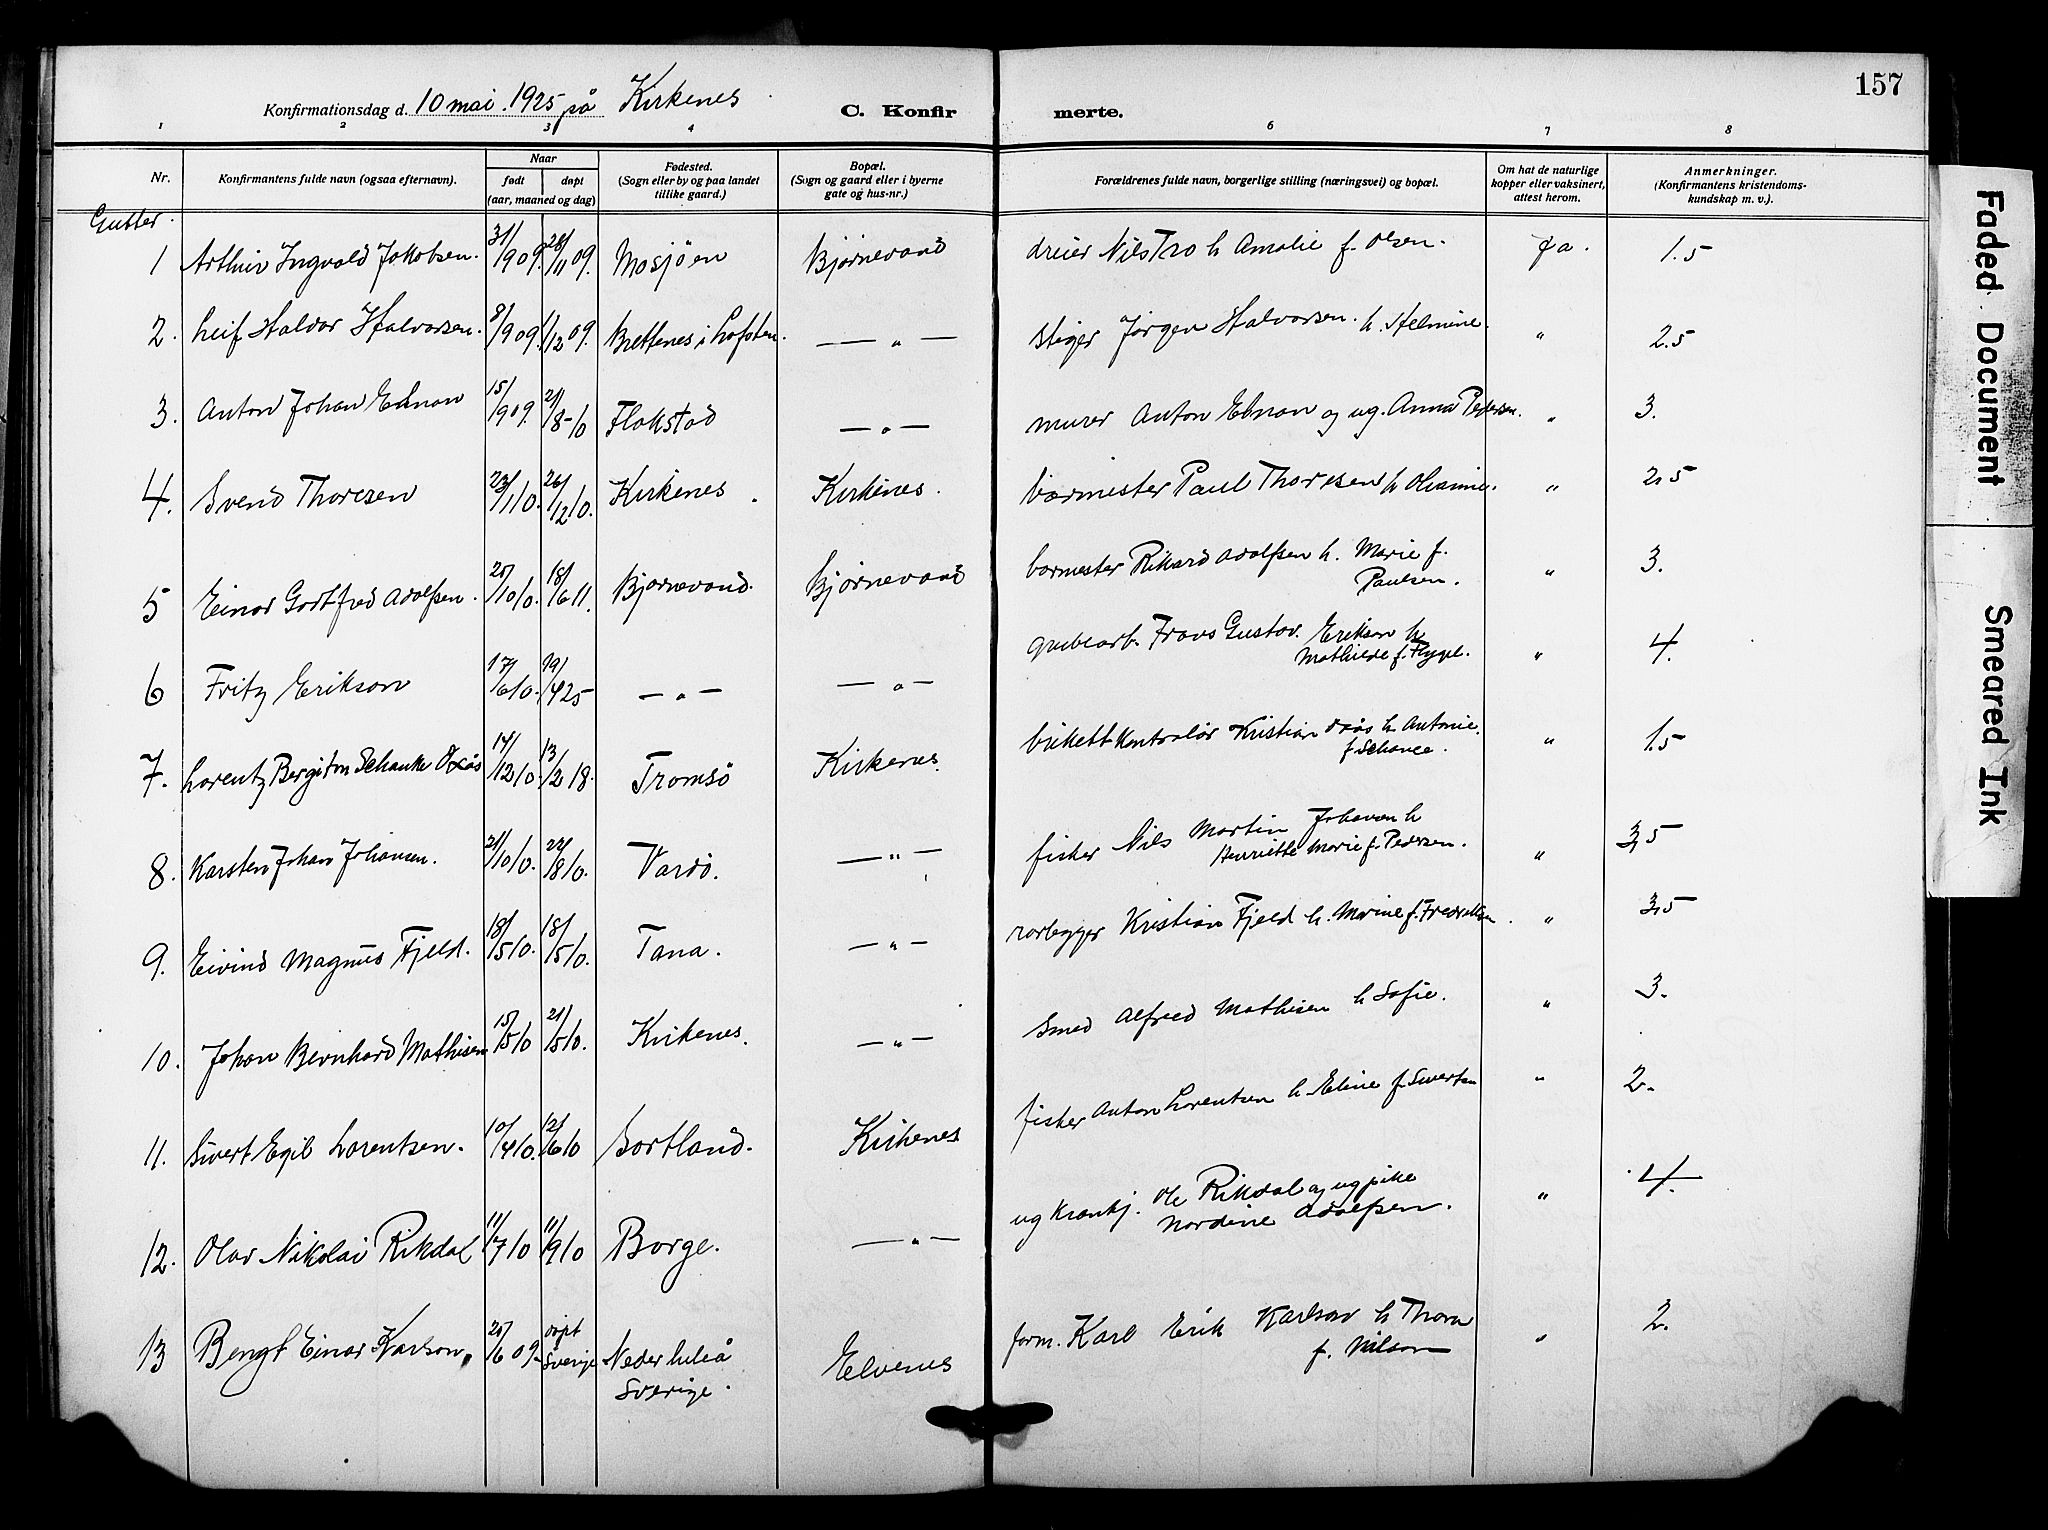 157
Konfirmationsdag d. 10 mai. 1925 på Kirkenes
C. Konfirmerte.
1 2 3 4 6 7 8
Nr. Konfirmantens fulde navn (ogsaa efternavn). Naar født døpt (aar, maaned og dag) Fødested. (Sogn eller by og paa landet tillike gaard.) Bopæl. (Sogn og gaard eller i byerne gate og hus-nr.) Forældrenes fulde navn, borgerlige stilling (næringsvei) og bopæl. Om hat de naturlige kopper eller vaksinert, attest herom. Anmerkninger. (Konfirmantens kristendoms-kundskap m. v.).
Gutter.
1 Arthur Ingvald Jakobsen. 31/9 09. 28/11 09. Mosjöen Bjørnevand dreier Nils Tro h Amalie f. Olsen. ja. 1.5
2. Leif Haldor Halvorsen. 8/9 09. 1/12 09. Brettenes i Lofoten. — " — stiger Jørgen Halvorsen. h. Helmine. " 2.5
3. Anton Johan 15/9 09. 2/8 - 10 Flakstad — " — murer Anton og ug. Anna Pedersen. " 3.
4. Svend Thoresen 23/1 10. 26/12 10. Kirkenes. Kirkenes. Paul Thoresen h " 2,5
5 Einar Gottfred Adolfsen. 20/10 10. 18/6 11. Bjørnevand. Bjørnevand bormester Rikard Adolfsen h. Marie f. Paulsen. " 3.
6 Fritz Erikson 17/6 10. 19/4 25 — " — — " — grubearb. Frans Gustav. Erikson h Mathilde f. " 4.
7. Lorentz Schanke Oxås 14/12 10. 13/2 18. Tromsö Kirkenes. kontrolör Kristian Oxås h Antonie. f Schance. " 1.5
8. Karsten Johan Johansen. 21/10 10. 22/8 10. Vardö. — " — fisker Nils Martin Johansen h Henriette Marie f. Pedersen. " 3,5
9. Eivind Magnus Fjeld. 18/5 10. 18/5 10. Tana. — " — rorlegger Kristian Fjeld h. Marine f. Fredriksen. " 3,5
10. Johan Bernhard Mathisen 15/5 10 21/5 10. Kirkenes. — " — Smed Alfred Mathisen h Sofie. " 3.
11. Sivert Egil Lorentsen. 10/4 10. 12/6 10 Sortland. Kirkenes fisker Anton Lorentsen h Eline f. Sivertsen " 2.
12. Olav Nikolai Rikdal 11/7 10 11/9 10 Borge. — " — ug Ole Rikdal og ug pike Nordine Adolfsen. " 4.
13 Bengt Einar Karlson. 20/6 09. døpt Sverige Neder Luleå Sverige. Elvenes form. Karl Erik Karlson h Thora f. Nilson " 2.
Faded Document
Smeared Ink